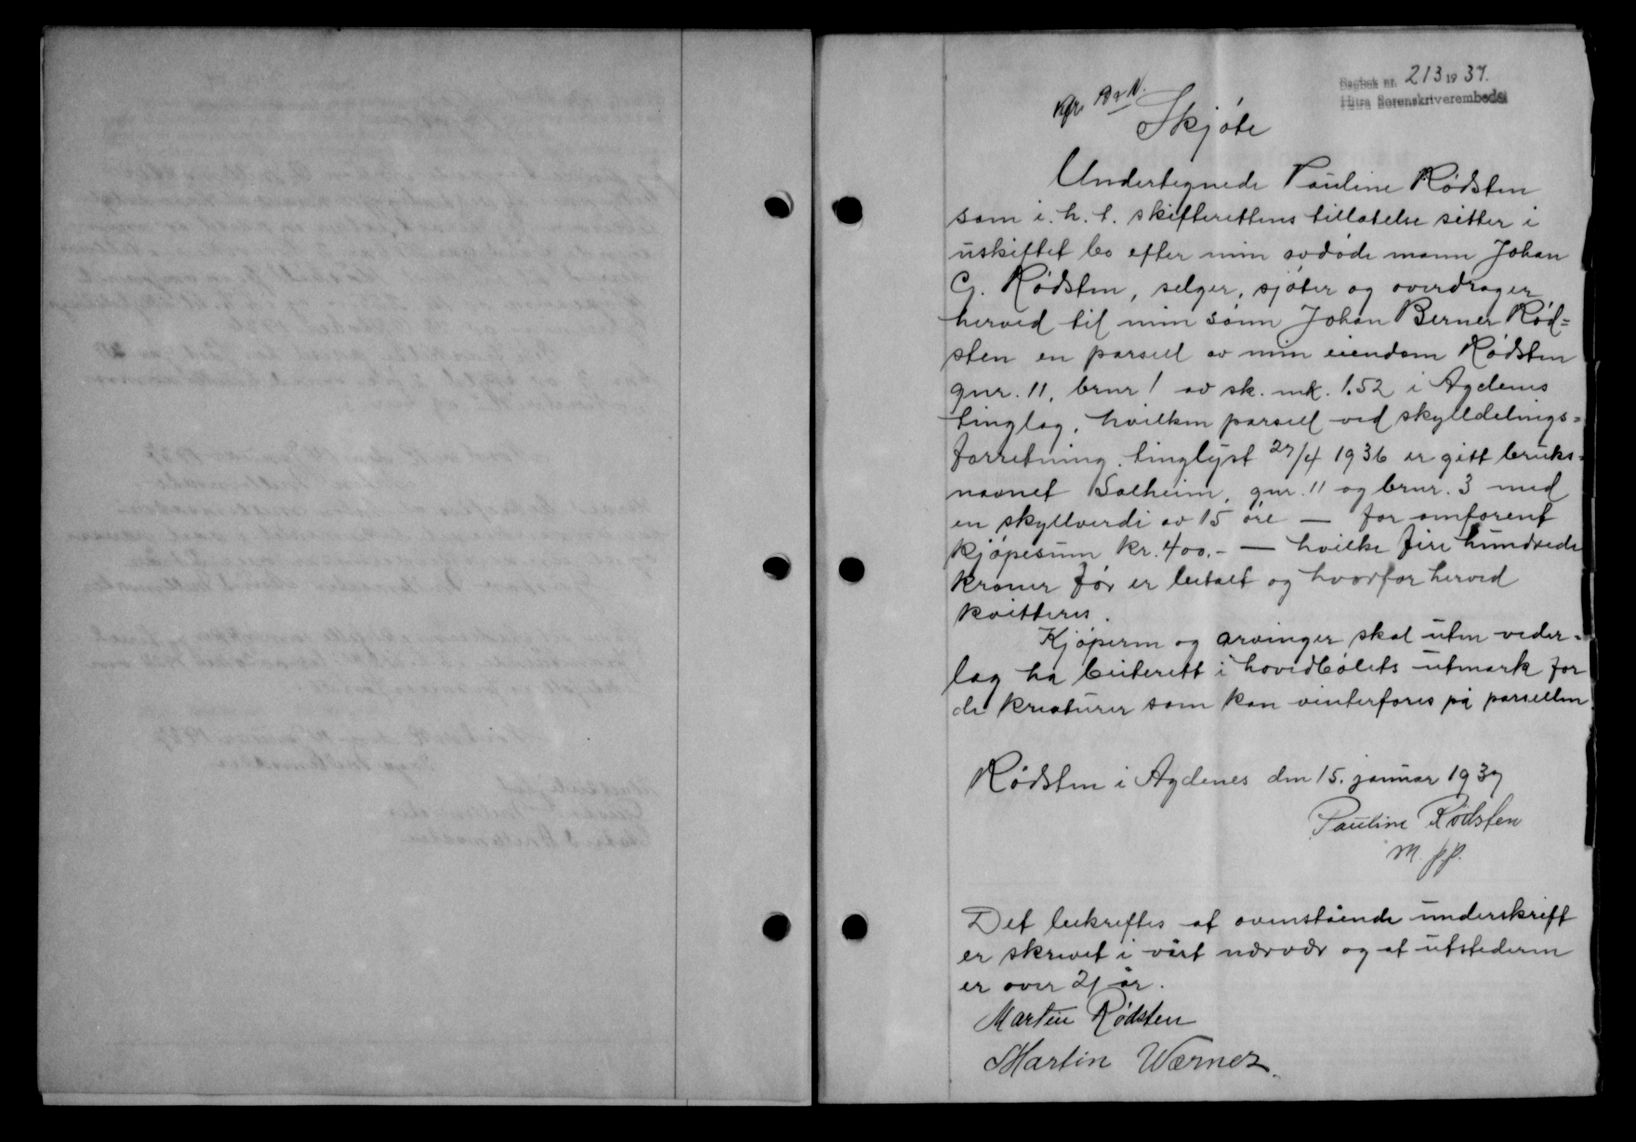 Dagbok nr. 213 1937.
Hitra Sorenskriverembede
Skjøte
Undertegnede Pauline Rødsten
som i.h.t. skifterettens tillatelse sitter i
uskiftet bo efter min avdøde mann Johan
G. Rødsten, selger, sjøter og overdrager
herved til min sønn Johan Berner Rød=
sten en parsell av min eiendom Rødsten
gnr. 11, brnr 1 av sk. mk. 1.52 i Agdenes
tinglag, hvilken parsell ved skylddelings=
forretning tinglyst 27/4 1936 er gitt bruks=
navnet Solheim, gnr. 11 og brnr. 3 med
en skyldverdi av 15 øre — for omforent
kjøpesum kr. 400.- — hvilke fire hundrede
kroner før er betalt og hvorfor herved
kvitteres.
Kjøperen og arvinger skal uten veder=
lag ha beiterett i hovedbølets utmark for
de kreaturer som kan vinterfores på parsellen
Rødsten i Agdenes den 15. januar 1937
Pauline Rødsten
m. p.p.
Det bekreftes at ovenstående underskrift
er skrevet i vårt nærvær og at utstederen
er over 21 år.
Martin Rødsten
Martin Wærnes.